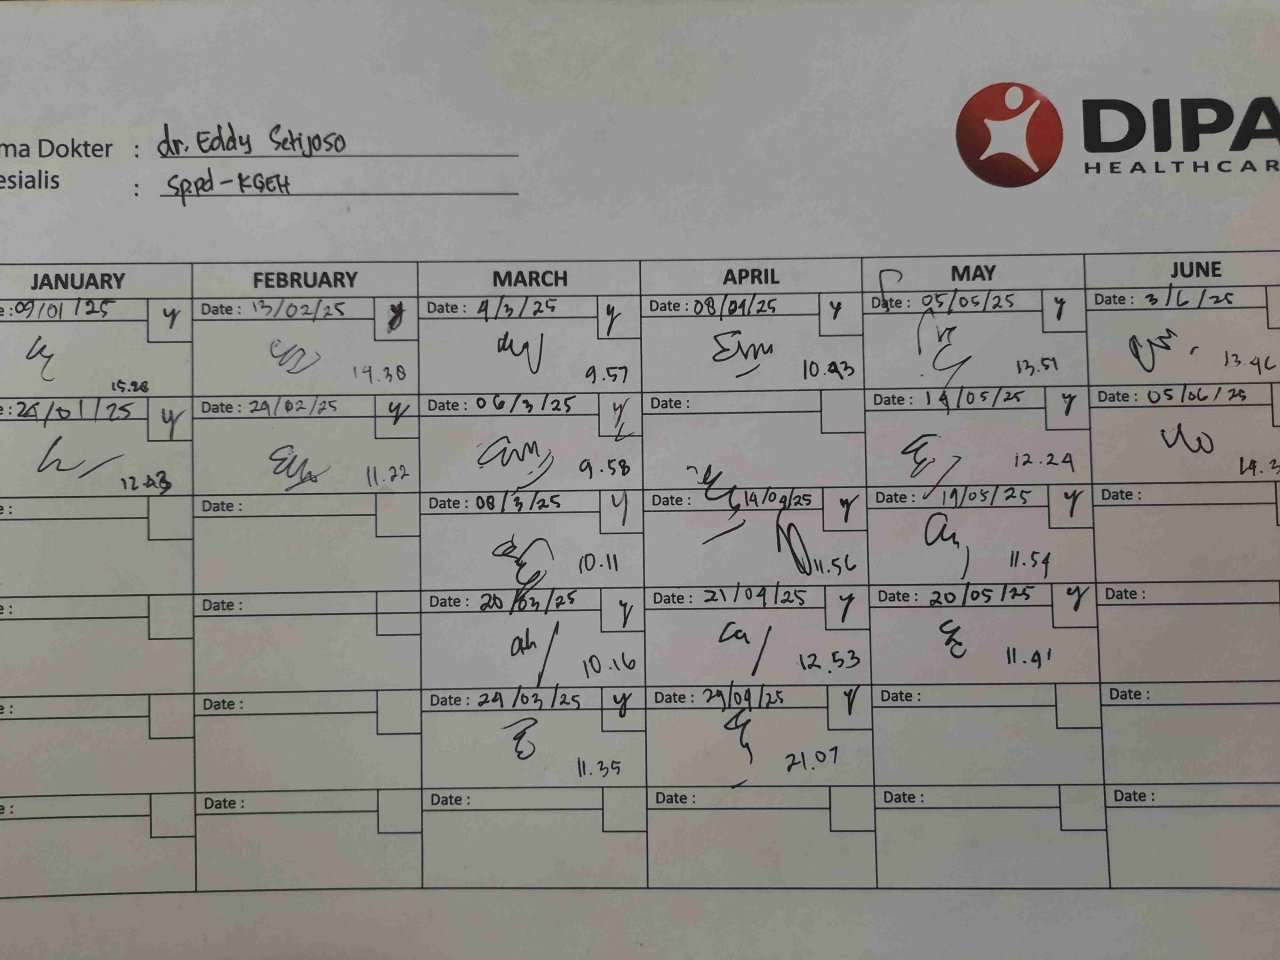 DIPA
HEALTHCAR
ma Dokter : dr. Eddy Setijoso
esialis : Sp.pd-KGEH
JANUARY FEBRUARY MARCH APRIL MAY JUNE
e: 09/01/25 y Date: 13/02/25 y Date: 4/3/25 y Date: 08/04/25 y Date: 05/05/25 y Date: 3/6/25
15.28 14.38 9.57 10.43 13.51 13.46
e: 24/01/25 y Date: 24/02/25 y Date: 06/3/25 y Date: Date: 14/05/25 y Date: 05/06/25
12.43 11.22 9.58 12.24 14.3
e: Date: Date: 08/3/25 y 14/04/25 y Date: 19/05/25 y Date:
10.11 11.56 11.54
e: Date: Date: 20/03/25 y Date: 21/04/25 y Date: 20/05/25 y Date:
10.16 12.53 11.41
e: Date: Date: 24/03/25 y Date: 29/04/25 y Date: Date:
11.35 21.07
e: Date: Date: Date: Date: Date: